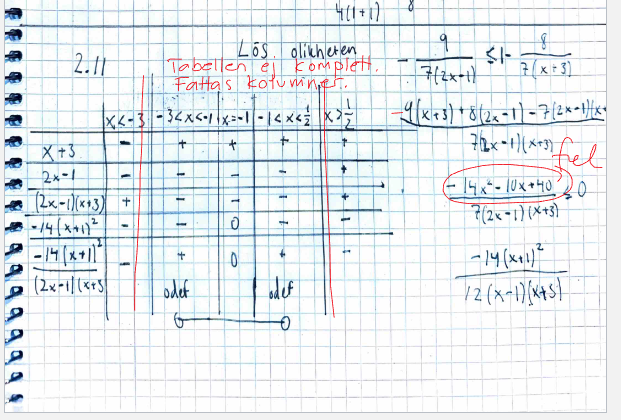 4(1+1) 8
2.11 Lös. olikheten - 9/7(2x-1) ≤ 1 - 8/7(x+3)
Tabellen ej komplett.
Fattas kolumner.
-9(x+3)+8(2x-1)-7(2x-1)(x+
7(2x-1)(x+3)
fel
-14x²-10x+40 ≤ 0
7(2x-1)(x+3)
-14(x+1)²
12(x-1)(x+3)
x<-3 -3<x<-1 x=-1 -1<x<1/2 x>1/2
x+3 - + + + +
2x-1 - - - - +
(2x-1)(x+3) + - - - +
-14(x+1)² - - 0 - -
-14(x+1)²/(2x-1)(x+3 - + 0 + -
odef odef